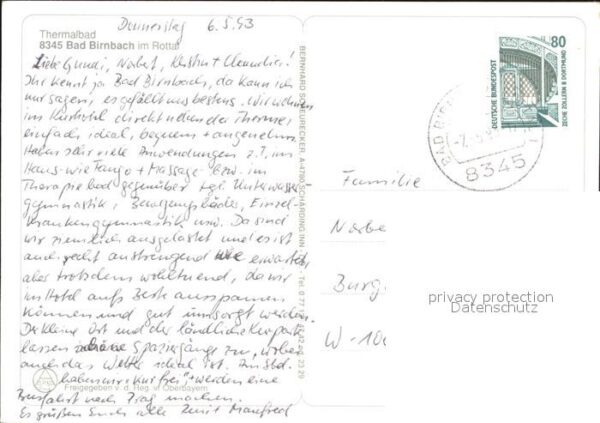 Donnerstag 6.5.93
Thermalbad
8345 Bad Birnbach im Rottal
Liebe Gundi, Norbert, Kerstin + Claudia!
Ihr kennt ja Bad Birnbach, da kann ich
nur sagen, es gefällt uns bestens. Wir wohnen
im Kurhotel direkt neben der Therme,
einfach ideal, bequem + angenehm.
Haben sehr viele Anwendungen z.T. im
Haus - wie Fango + Massage bzw. im
Therapiebad gegenüber tgl. Unterwasser
gymnastik, Bewegungsbäder, Einzel-
krankengymnastik usw. Da sind
wir ziemlich ausgelastet und es ist
auch recht anstrengend wie erwartet
aber trotzdem wohltuend, da wir
im Hotel aufs Beste ausspannen
können und gut umsorgt werden.
Der kleine Ort und der ländliche Kurpark
lassen schöne Spaziergänge zu, wobei
auch das Wetter ideal ist. Am
haben wir "kurfrei" + werden eine
Busfahrt nach Prag machen.
Es grüßen Euch alle Manfred
Freigegeben v. d. Reg. v. Oberbayern
BERNHARD SCHEURECKER, A-4780 SCHÄRDING INN
80
DEUTSCHE BUNDESPOST
ZECHE ZOLLERN II DORTMUND
BAD BIRNBACH
8345
Familie
Norbe
Burg
W-100
privacy protection
Datenschutz